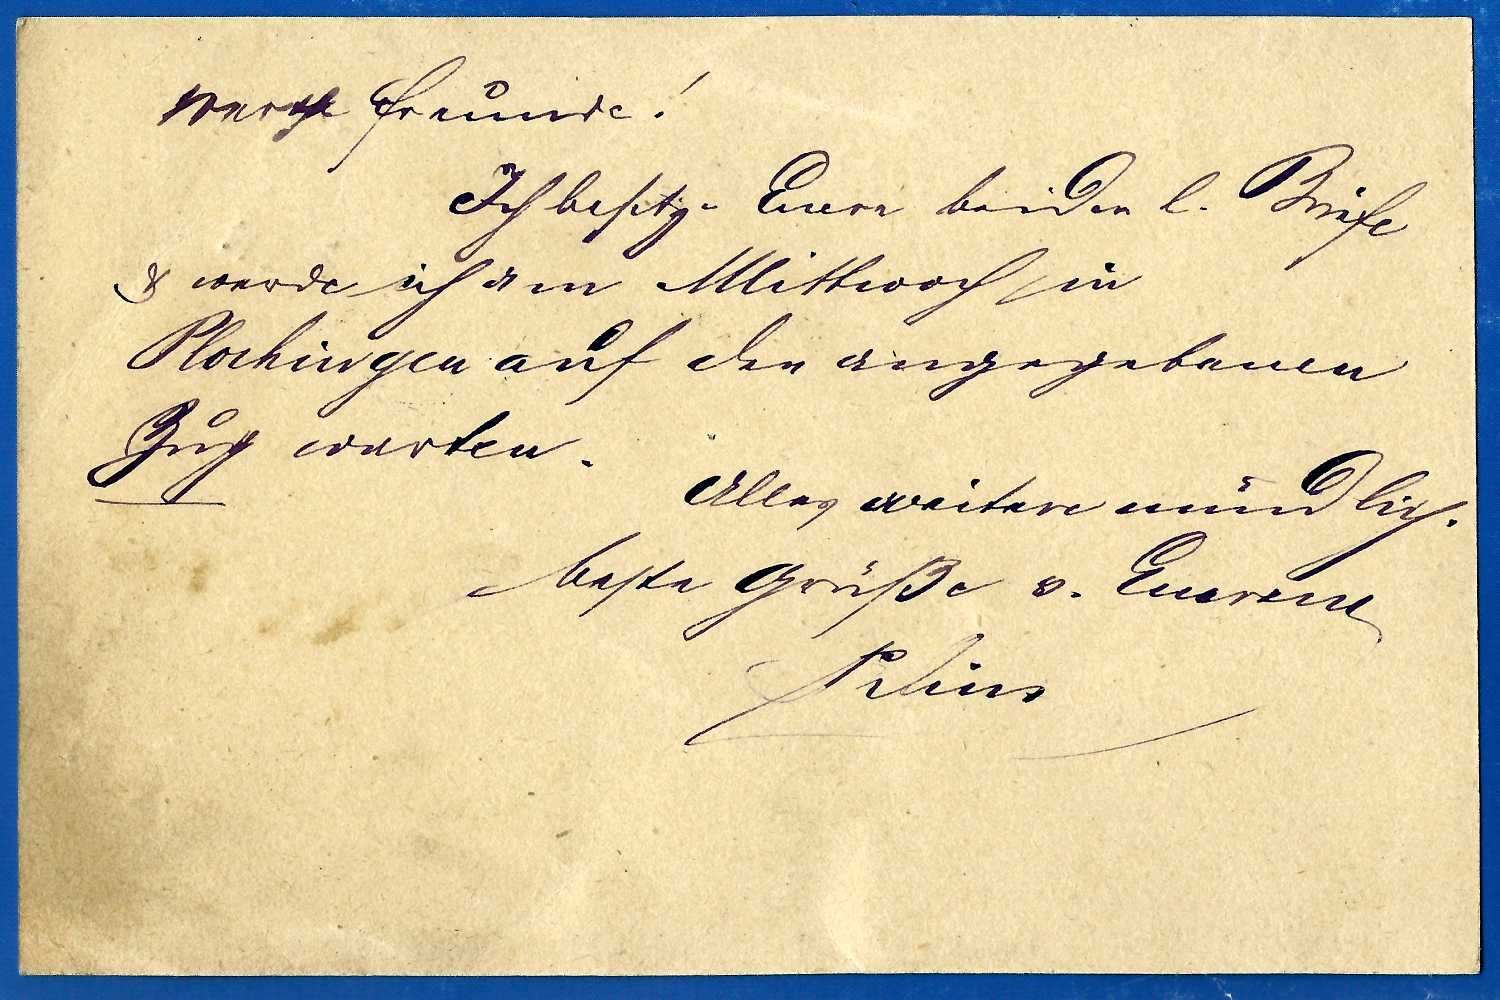 Werthe Freunde!
Ich besitze Euere beiden l. Briefe
& werde ich am Mittwoch in
Plochingen auf den angegebenen
Zug warten.
Alles weitere mündlich.
beste Grüße v. Euerem